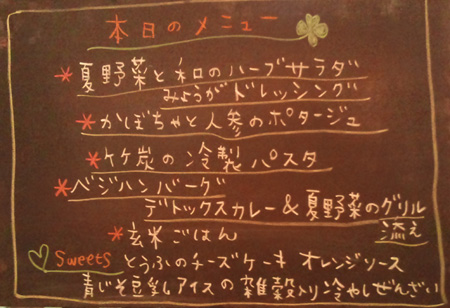 本日のメニュー
*夏野菜と和のハーブサラダ
みょうがドレッシング
*かぼちゃと人参のポタージュ
*竹炭の冷製パスタ
*ベジハンバーグ
デトックスカレー&夏野菜のグリル
添え
*玄米ごはん
Sweets とうふのチーズケーキ オレンジソース
青じそ豆乳アイスの雑穀入り冷やしぜんざい